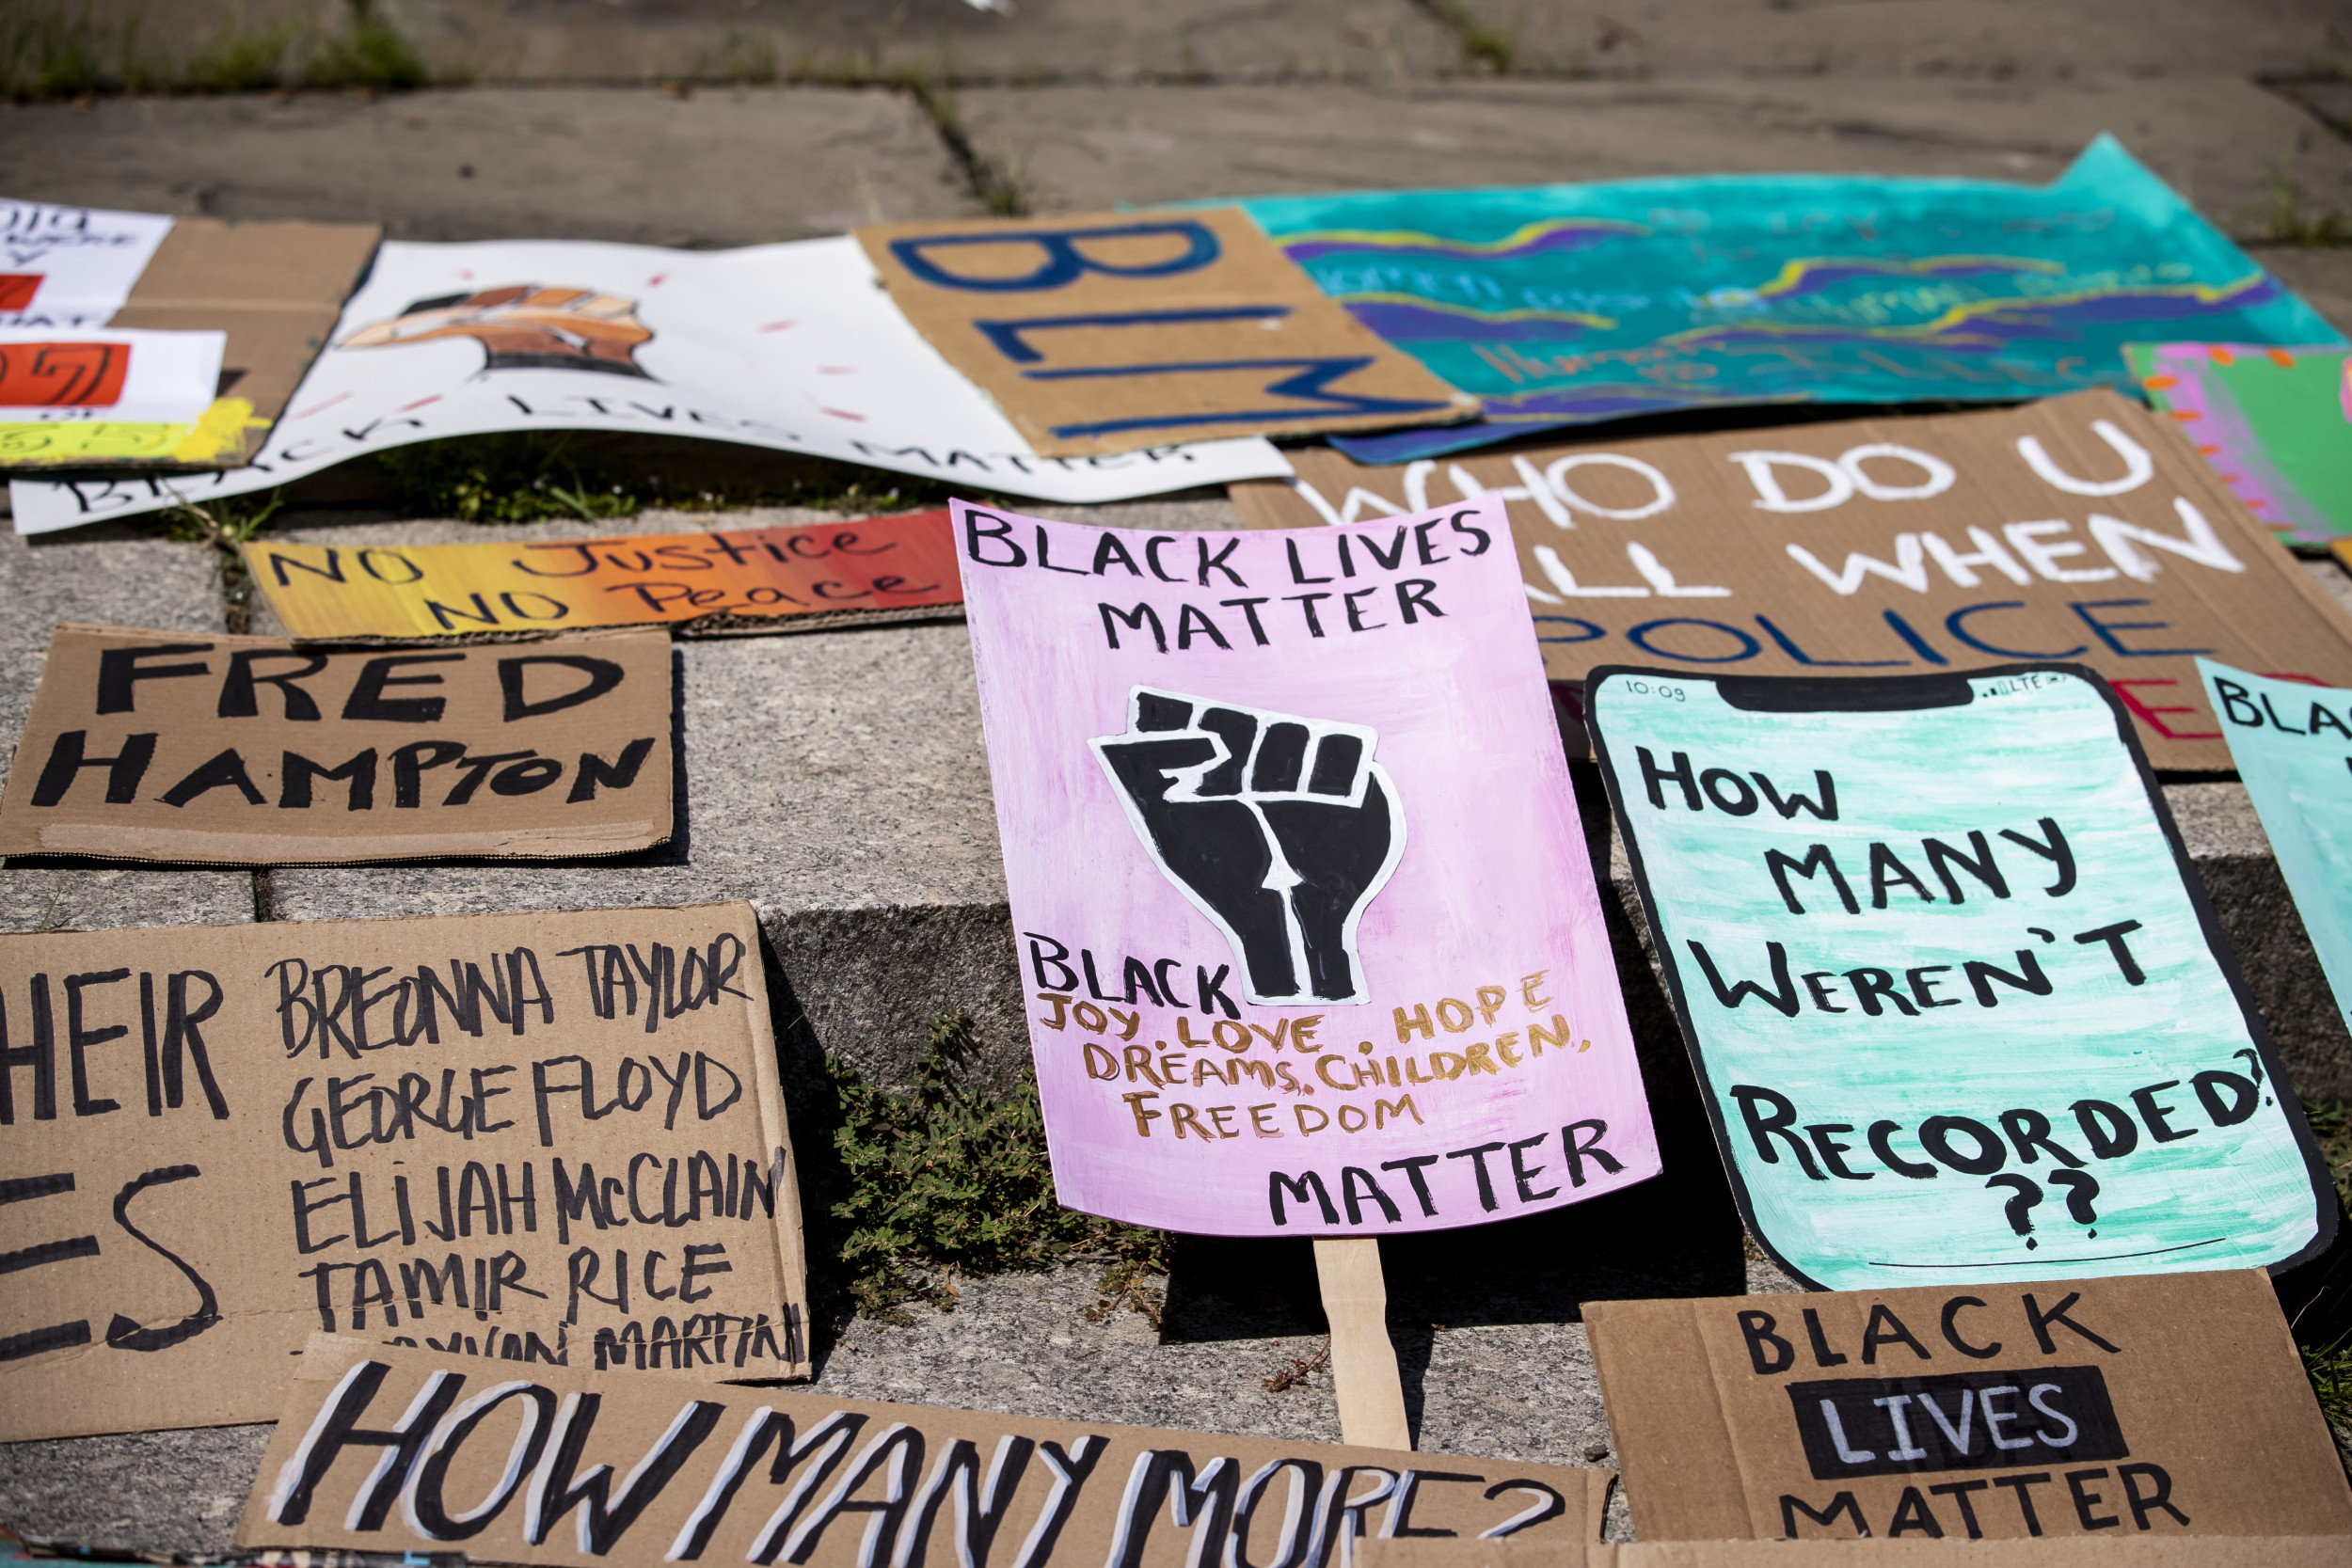 BLM
BLACK LIVES MATTER
WHO DO U
WHEN
POLICE
NO Justice
NO Peace
FRED
HAMPTON
BLACK LIVES
MATTER
BLACK
JOY. LOVE. HOPE
DREAMS. CHILDREN,
FREEDOM
MATTER
10:09
LTE
HOW
MANY
WEREN'T
RECORDED?
??
HEIR
ES
BREONNA TAYLOR
GEORGE FLOYD
ELIJAH McCLAIN
TAMIR RICE
MARTIN
HOW MANY MORE?
BLACK
LIVES
MATTER